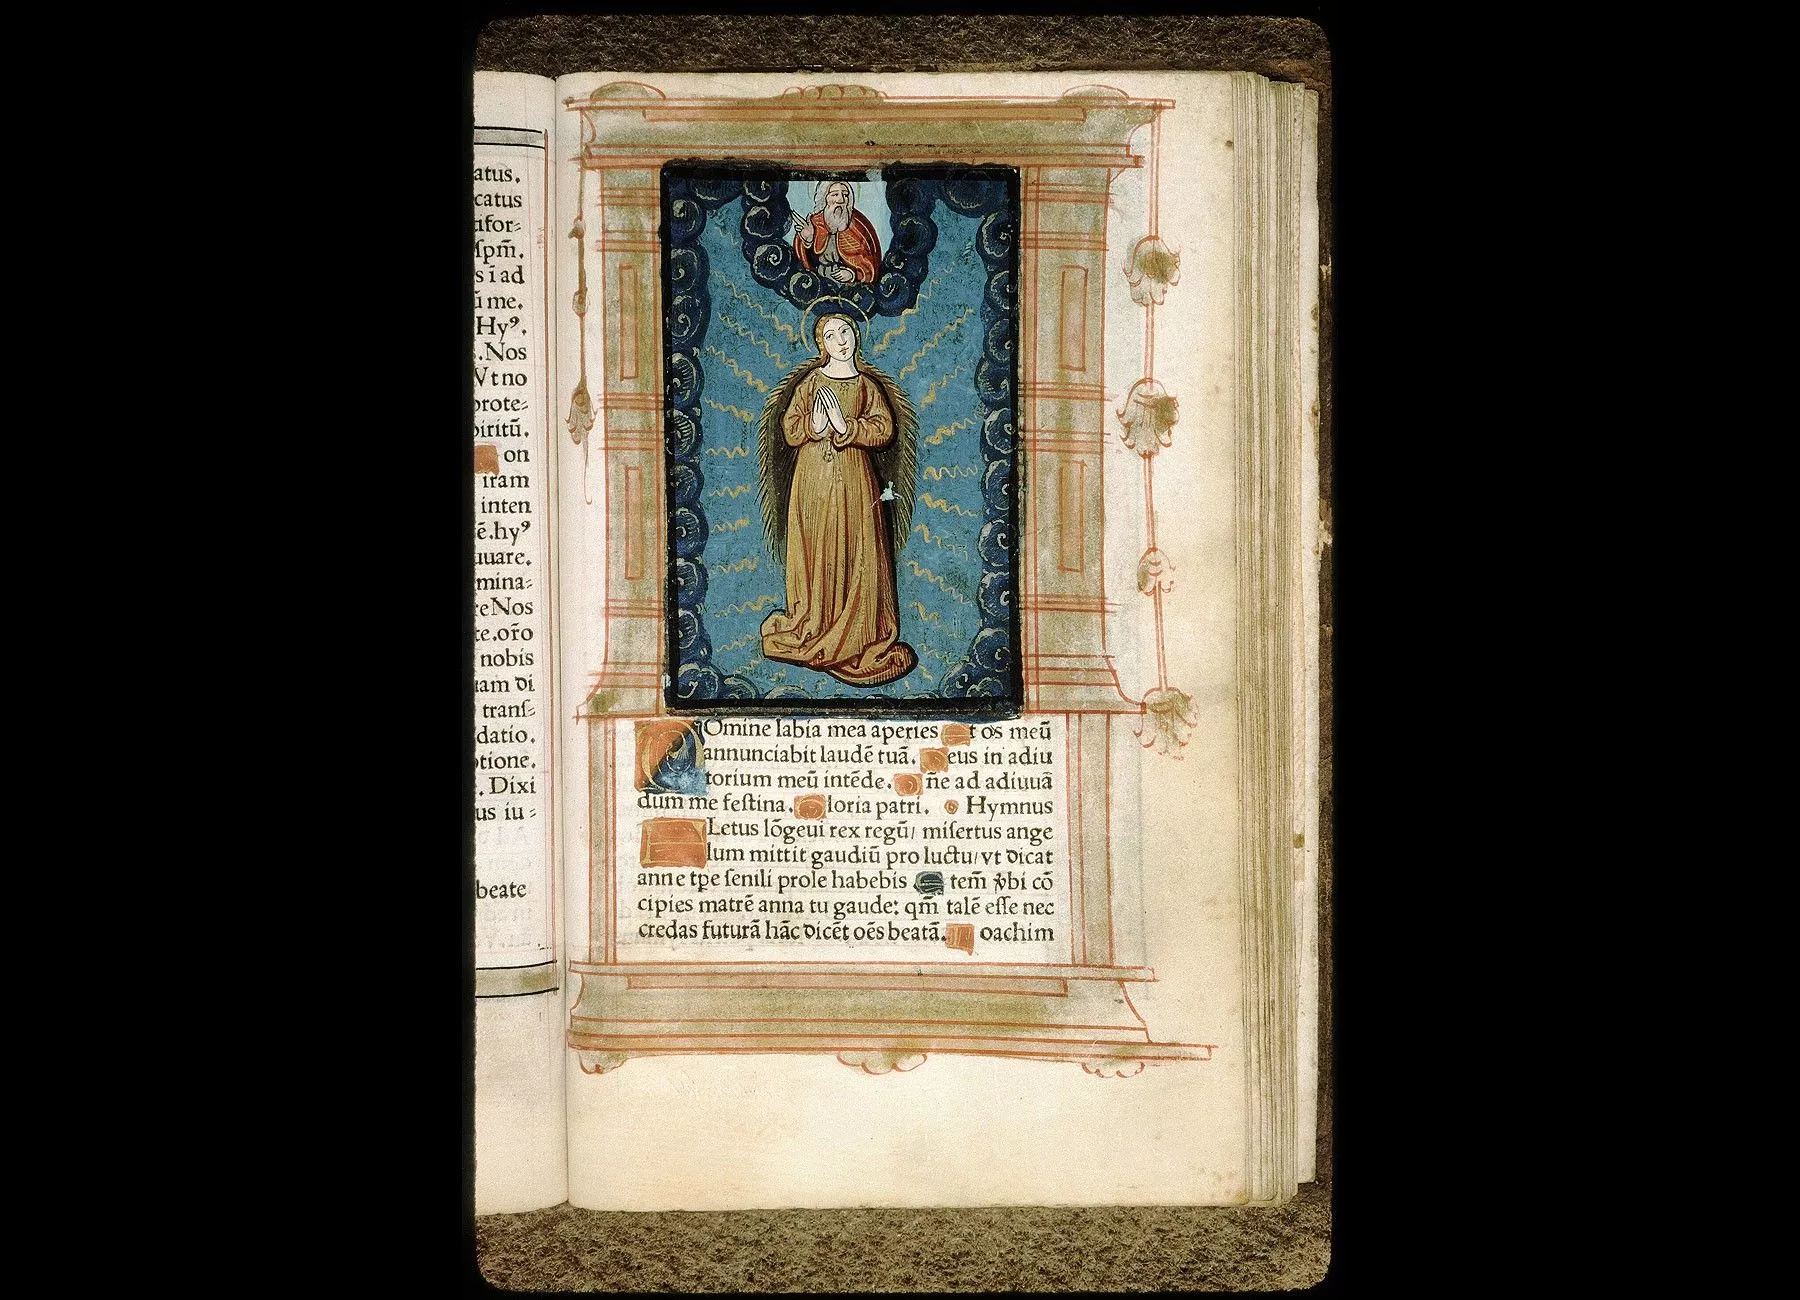 atus.
catus
ifor⸗
spm̃.
s ī ad
ū me.
Hyꝰ.
.Nos
Vt no
prote⸗
piritū.
on
iram
inten
ē.hyꝰ
uuare.
mina⸗
re Nos
te.or̃o
nobis
uam di
trans⸗
datio.
ptione.
. Dixi
us iu⸗
beate
DOmine labia mea aperies et os meū
annunciabit laudē tuā. Deus in adiu
torium meū intēde. Dñe ad adiuuā
dum me festina. Gloria patri. Hymnus
FLetus lōgeui rex regū/ misertus ange
lum mittit gaudiū pro luctu/ vt dicat
anne tp̄e senili prole habebis tem̃ vbi cō
cipies matrē anna tu gaude: qm̃ talē esse nec
credas futurā hāc dicēt oēs beatā. Ioachim